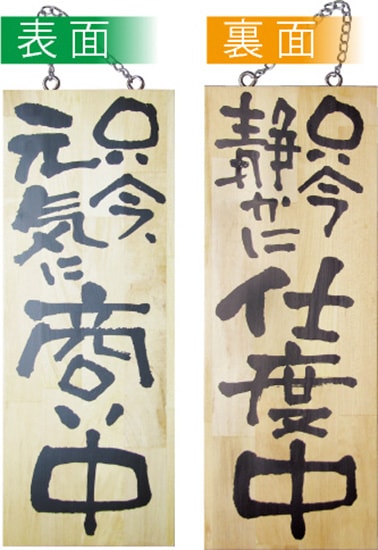 表面
只今、
元気に
商い中
裏面
只今
静かに
仕度中